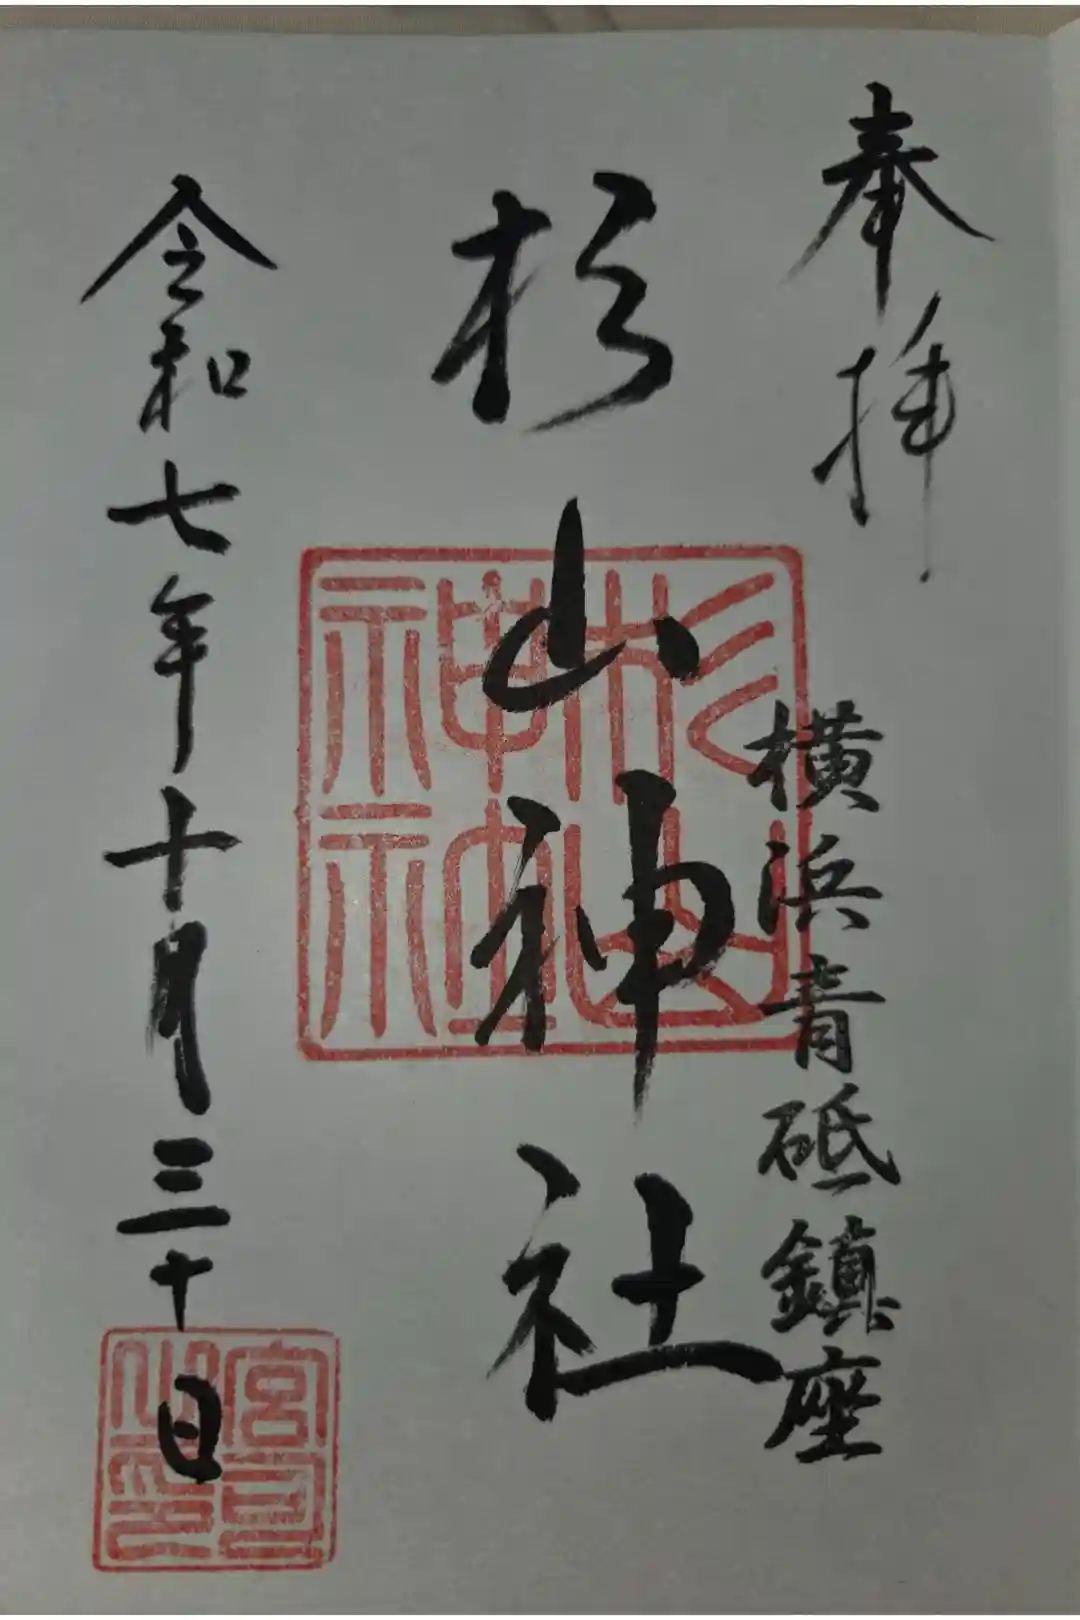 奉拝
横浜青砥鎮座
杉山神社
杉山神社
令和七年十月三十日
宮司之印